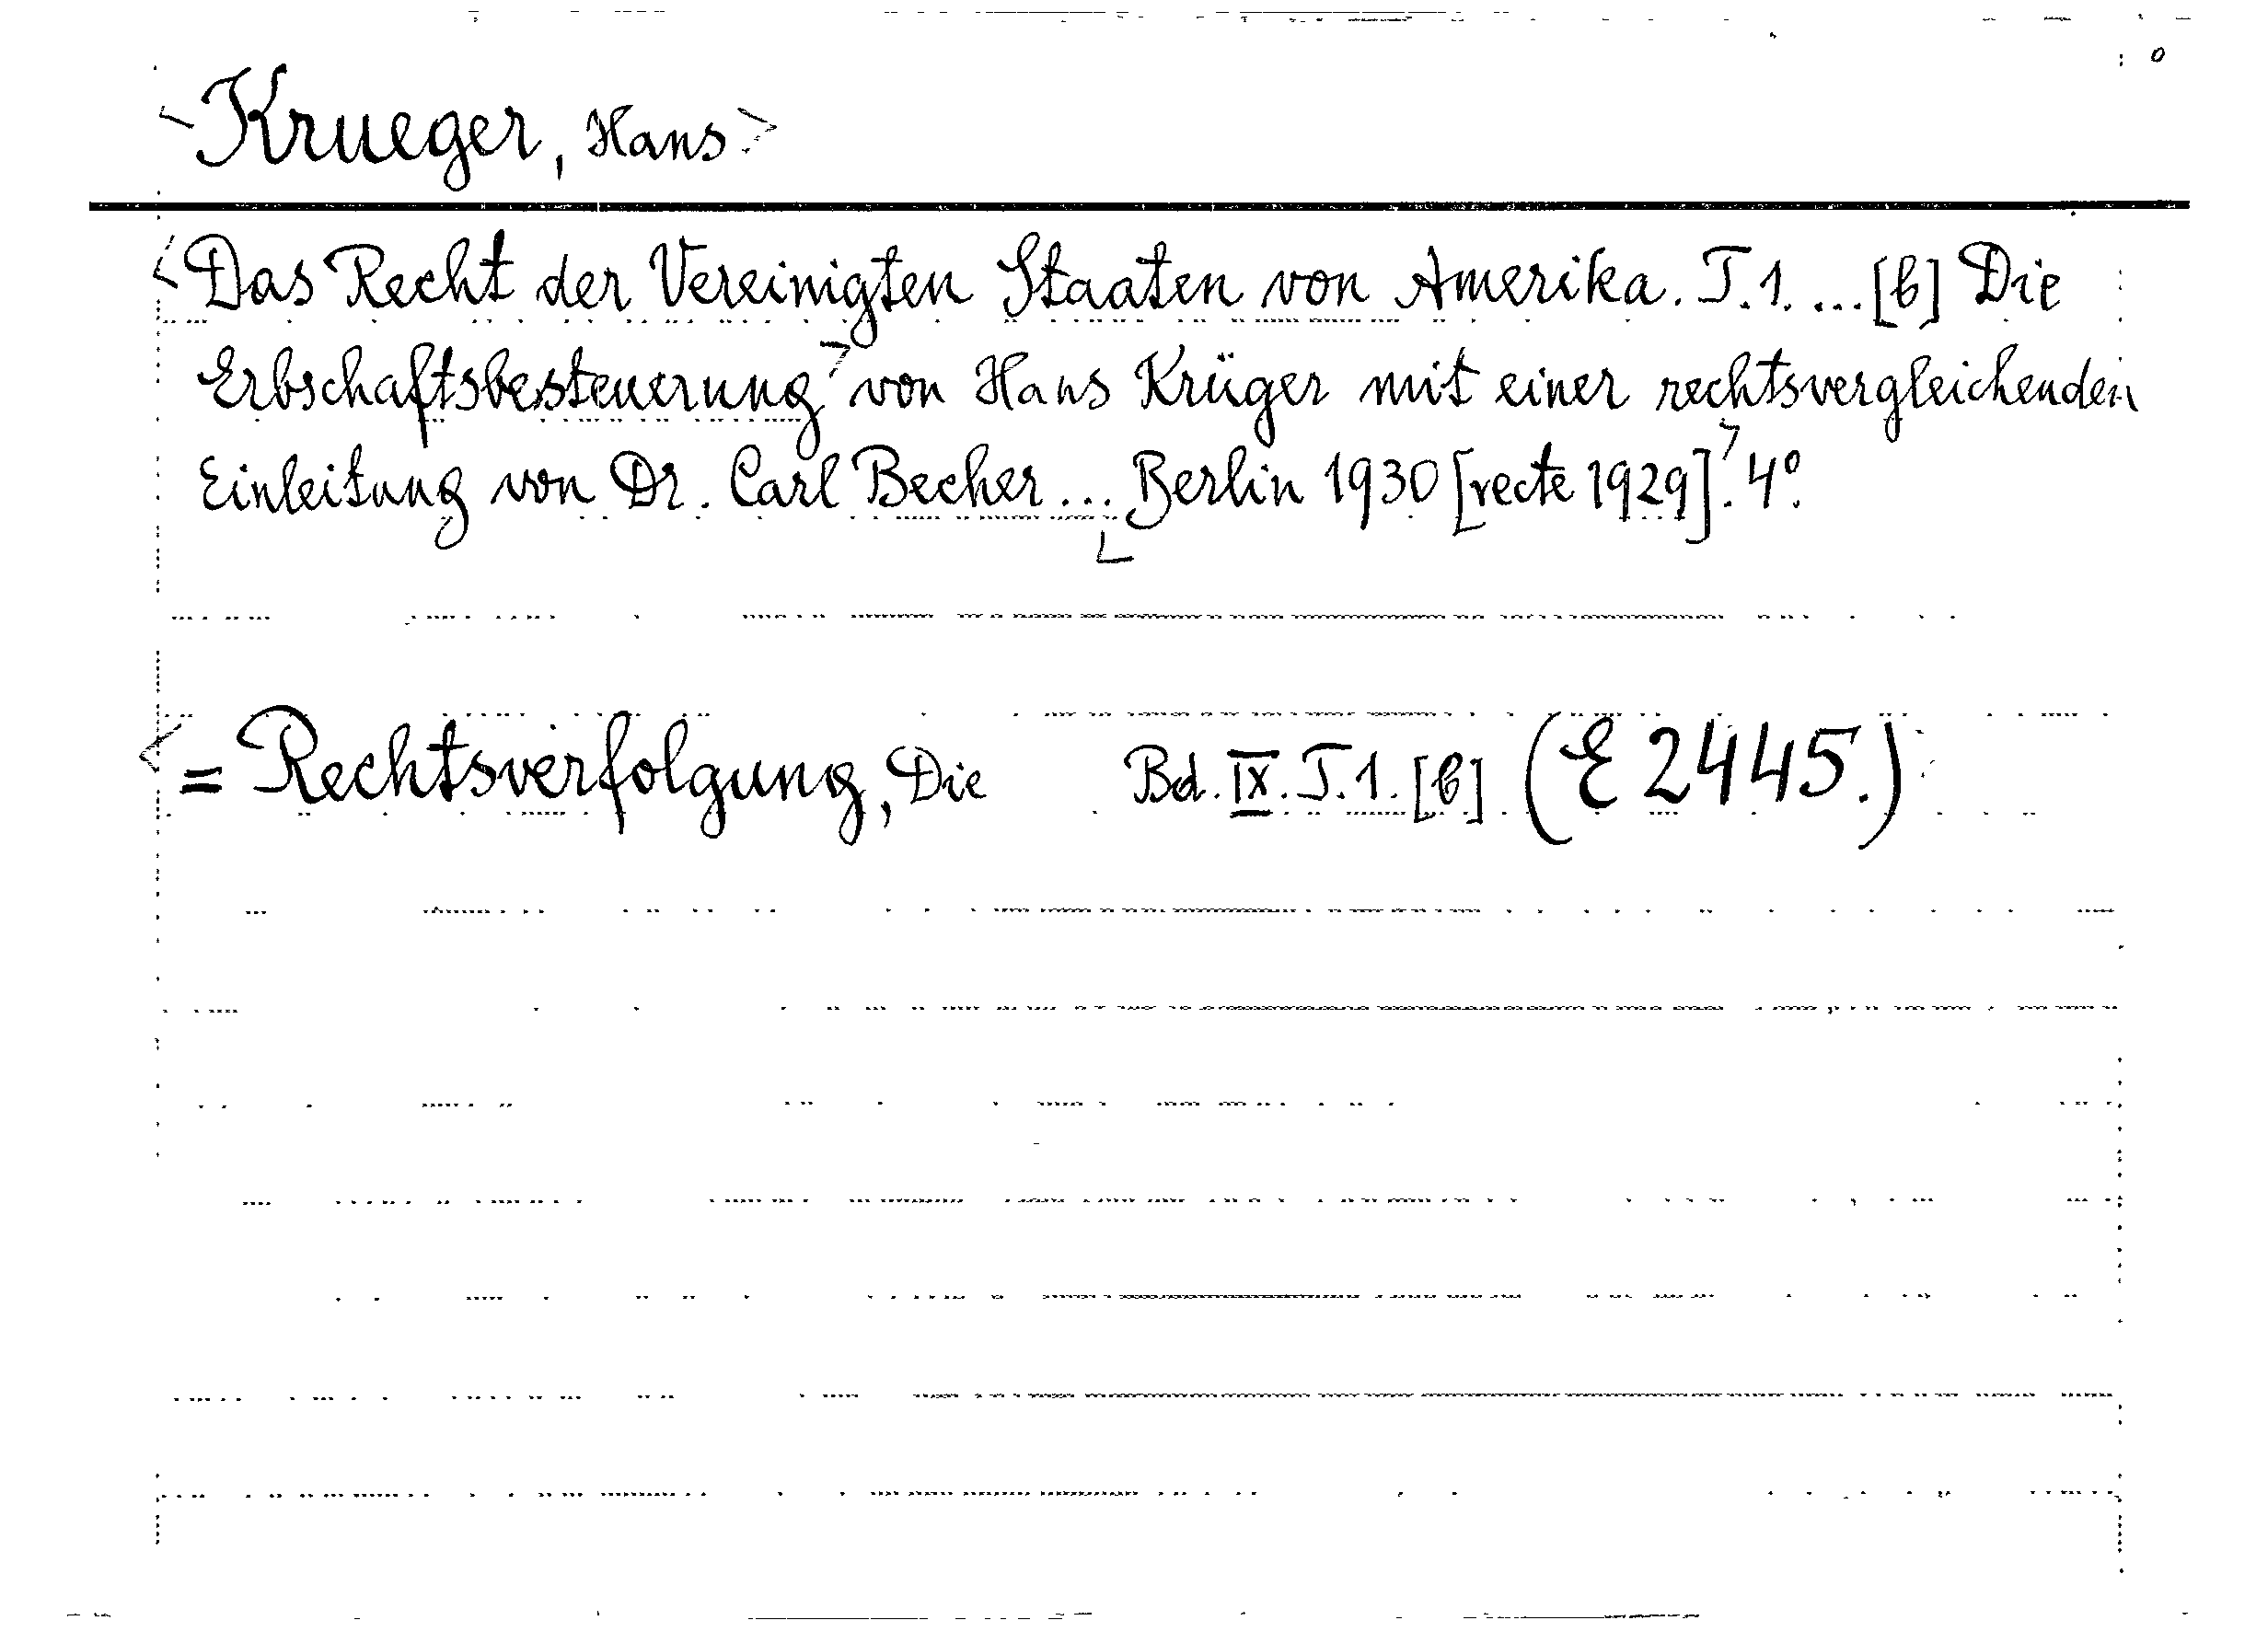 <Krueger, Hans>
<Das Recht der Vereinigten Staaten von Amerika. T.1. ... [b] Die
Erbschaftsbesteuerung> von Hans Krüger mit einer rechtsvergleichenden
Einleitung von Dr. Carl Becher ... <Berlin 1930 [recte 1929].> 4°.
<= Rechtsverfolgung, Die Bd. IX. T.1. [b] (E 2445.)>